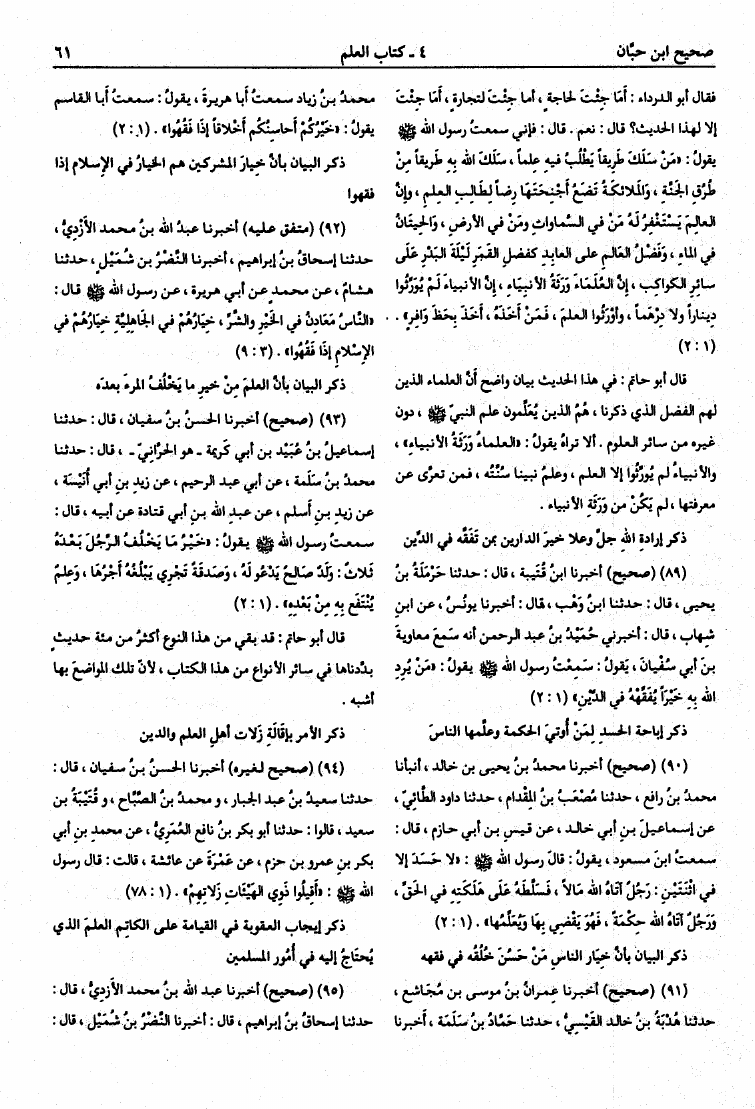 صحيح ابن حبَّان
٤ ـ كتاب العلم
٦١
فقال أبو الدرداء : أمَا جِئْتَ لحاجة ، أما جِئْتَ لتجارة ، أَمَا جِئتَ
إلا لهذا الحديث؟ قال : نعم . قال : فإني سمعتُ رسول الله ﷺ
يقولُ : «مَنْ سَلَكَ طَريقاً يَطْلُبُ فيه عِلماً ، سَلَكَ الله بِهِ طَريقاً مِنْ
طُرُقِ الجَنَّة ، وَالملائكَةُ تَضَعُ أَجْنِحَتَها رِضاً لِطَالِبِ العلم ، وإنَّ
العالِمَ يَسْتَغْفِرُ لَهُ مَنْ في السَّماواتِ وَمَنْ في الأرضِ ، وَالحيتَانُ
في الماءِ ، وَفَضْلُ العَالِم على العابِدِ كفضلِ القمَرِ لَيْلَةَ البَدْرِ عَلَى
سائِرِ الكواكبِ ، إنَّ العُلَمَاءَ وَرَثَةُ الأنبياءِ ، إنَّ الأنبياءَ لَمْ يُوَرِّثُوا
ديناراً ولا دِرْهَماً ، وأوْرَثُوا العلمَ ، فَمَنْ أَخَذَهُ ، أَخَذَ بِحَظٍّ وَافِرٍ» .
(١ : ٢)
قال أبو حاتم : في هذا الحديث بيان واضح أنَّ العلماء الذين
لهم الفضل الذي ذكرنا ، هُمُ الذين يُعَلِّمون علم النبيِّ ﷺ ، دون
غيره من سائر العلوم . ألا تراهُ يقولُ : «العلماءُ وَرَثَةُ الأنبياء» ،
والأنبياءُ لم يُوَرِّثُوا إلا العلم ، وعلمُ نبينا سُنَّتُه ، فمن تعرَّى عن
معرفتها ، لم يَكُنْ من وَرَثَةِ الأنبياء .
ذكر إرادةِ اللهِ جلَّ وعلا خيرَ الدارين بمن تَفَقَّه في الدِّين
(٨٩) (صحيح) أخبرنا ابنُ قُتَيبة ، قال : حدثنا حَرْمَلَةُ بنُ
يحيى ، قال : حدثنا ابنُ وَهْبٍ ، قال : أخبرنا يونُسُ ، عن ابنِ
شهاب ، قال : أخبرني حُمَيْدُ بنُ عبد الرحمن أنه سَمِعَ معاوية
بنَ أبي سُفْيان ، يَقولُ : سَمِعْتُ رسول الله ﷺ يقولُ : «مَنْ يُرِدِ
الله بِهِ خَيْراً يُفَقِّهْهُ في الدِّينِ» (١ : ٢)
ذكر إباحة الحسد لِمَنْ أُوتيَ الحكمة وعلَّمها الناسَ
(٩٠) (صحيح) أخبرنا محمدُ بنُ يحيى بن خالد ، أنبأنا
محمدُ بنُ رافع ، حدثنا مُصْعَبُ بنُ المِقْدام ، حدثنا داود الطَّائِيُّ ،
عن إسماعيلَ بنِ أبي خالد ، عن قيسِ بن أبي حازم ، قال :
سمعتُ ابنَ مسعود ، يقولُ : قالَ رسول الله ﷺ : «لا حَسَدَ إلا
في اثْنَتَيْنِ : رَجُلٌ آتَاهُ الله مَالاً ، فَسَلَّطَهُ عَلَى هَلَكَتِهِ في الحَقِّ ،
وَرَجُلٌ آتَاهُ الله حِكْمَةً ، فَهُوَ يَقْضِي بِهَا وَيُعَلِّمُها» . (١ : ٢)
ذكر البيان بأنَّ خيَار الناسِ مَنْ حَسُنَ خُلُقُه في فقهه
(٩١) (صحيح) أخبرنا عِمرانُ بنُ موسى بن مُجَاشع ،
حدثنا هُدْبَةُ بنُ خالد القَيْسِيُّ ، حدثنا حَمَّادُ بنُ سَلَمَة ، أَخبرنا
محمدُ بنُ زياد سمعتُ أبا هريرةَ ، يقولُ : سمعتُ أبا القاسم
يقولُ : «خَيْرُكُمْ أحاسنُكُم أَخْلاقاً إذَا فَقُهُوا» . (١ : ٢)
ذكر البيان بأنَّ خيارَ المشركين هم الخيارُ في الإسلام إذا
فقهوا
(٩٢) (متفق عليه) أخبرنا عبدُ الله بنُ محمد الأَزْدِيُّ ،
حدثنا إسحاقُ بنُ إبراهيم ، أخبرنا النَّضْرُ بن شُمَيْلٍ ، حدثنا
هشامٌ ، عن محمدٍ عن أبي هريرة ، عن رسول الله ﷺ قال :
«النَّاسُ مَعَادِنُ في الخَيْرِ والشَّرِّ ، خِيَارُهُمْ في الجَاهِلِيَّةِ خِيَارُهُمْ في
الإسْلامِ إذَا فَقُهُوا» . (٣ : ٩)
ذكر البيان بأنَّ العلمَ مِنْ خيرِ ما يَخْلُفُ المرءَ بعدَه
(٩٣) (صحيح) أخبرنا الحسنُ بنُ سفيان ، قال : حدثنا
إسماعيلُ بنُ عُبَيْد بن أبي كَريمة ـ هو الحَرَّانيّ ـ ، قال : حدثنا
محمدُ بنُ سَلَمة ، عن أبي عبد الرحيم ، عن زيدِ بنِ أبي أُنَيْسَةَ ،
عن زيدِ بنِ أَسلم ، عن عبدِ الله بنِ أبي قتادة عن أبيه ، قال :
سمعتُ رسول الله ﷺ يقولُ : «خَيْرُ مَا يَخْلُفُ الرَّجُلَ بَعْدَهُ
ثَلاثٌ : وَلَدٌ صَالحٌ يَدْعُو لَهُ ، وَصَدَقَةٌ تَجْرِي يَبْلُغُهُ أَجْرُهَا ، وَعِلمٌ
يُنْتَفَع بِهِ مِنْ بَعْدِهِ» . (١ : ٢)
قال أبو حاتم : قد بقي من هذا النوع أكثرُ من مئة حديثٍ
بدَّدناها في سائر الأنواع من هذا الكتاب ، لأنَّ تلك المواضعَ بها
أشبه .
ذكر الأمر بإقَالَةِ زَلات أهلِ العلم والدين
(٩٤) (صحيح لغيره) أخبرنا الحسنُ بنُ سفيان ، قال :
حدثنا سعيدُ بنُ عبد الجبار ، و محمدُ بنُ الصَّبَّاح ، و قُتَيْبَةُ بن
سعيد ، قالوا : حدثنا أبو بكر بنُ نافع العُمَرِيُّ ، عن محمدِ بنِ أبي
بكرِ بنِ عمرو بن حزم ، عن عَمْرَةَ عن عائشة ، قالت : قال رسول
الله ﷺ : «أَقِيلُوا ذَوِي الهَيْئَاتِ زَلَّاتِهِمْ» . (١ : ٧٨)
ذكر إيجابِ العقوبة في القيامة على الكاتم العلمَ الذي
يُحتَاجُ إليه في أُمُور المسلمين
(٩٥) (صحيح) أخبرنا عبد الله بنُ محمد الأَزْدِيُّ ، قال :
حدثنا إسحاقُ بنُ إبراهيم ، قال : أخبرنا النَّضْرُ بنُ شُمَيْل ، قال :